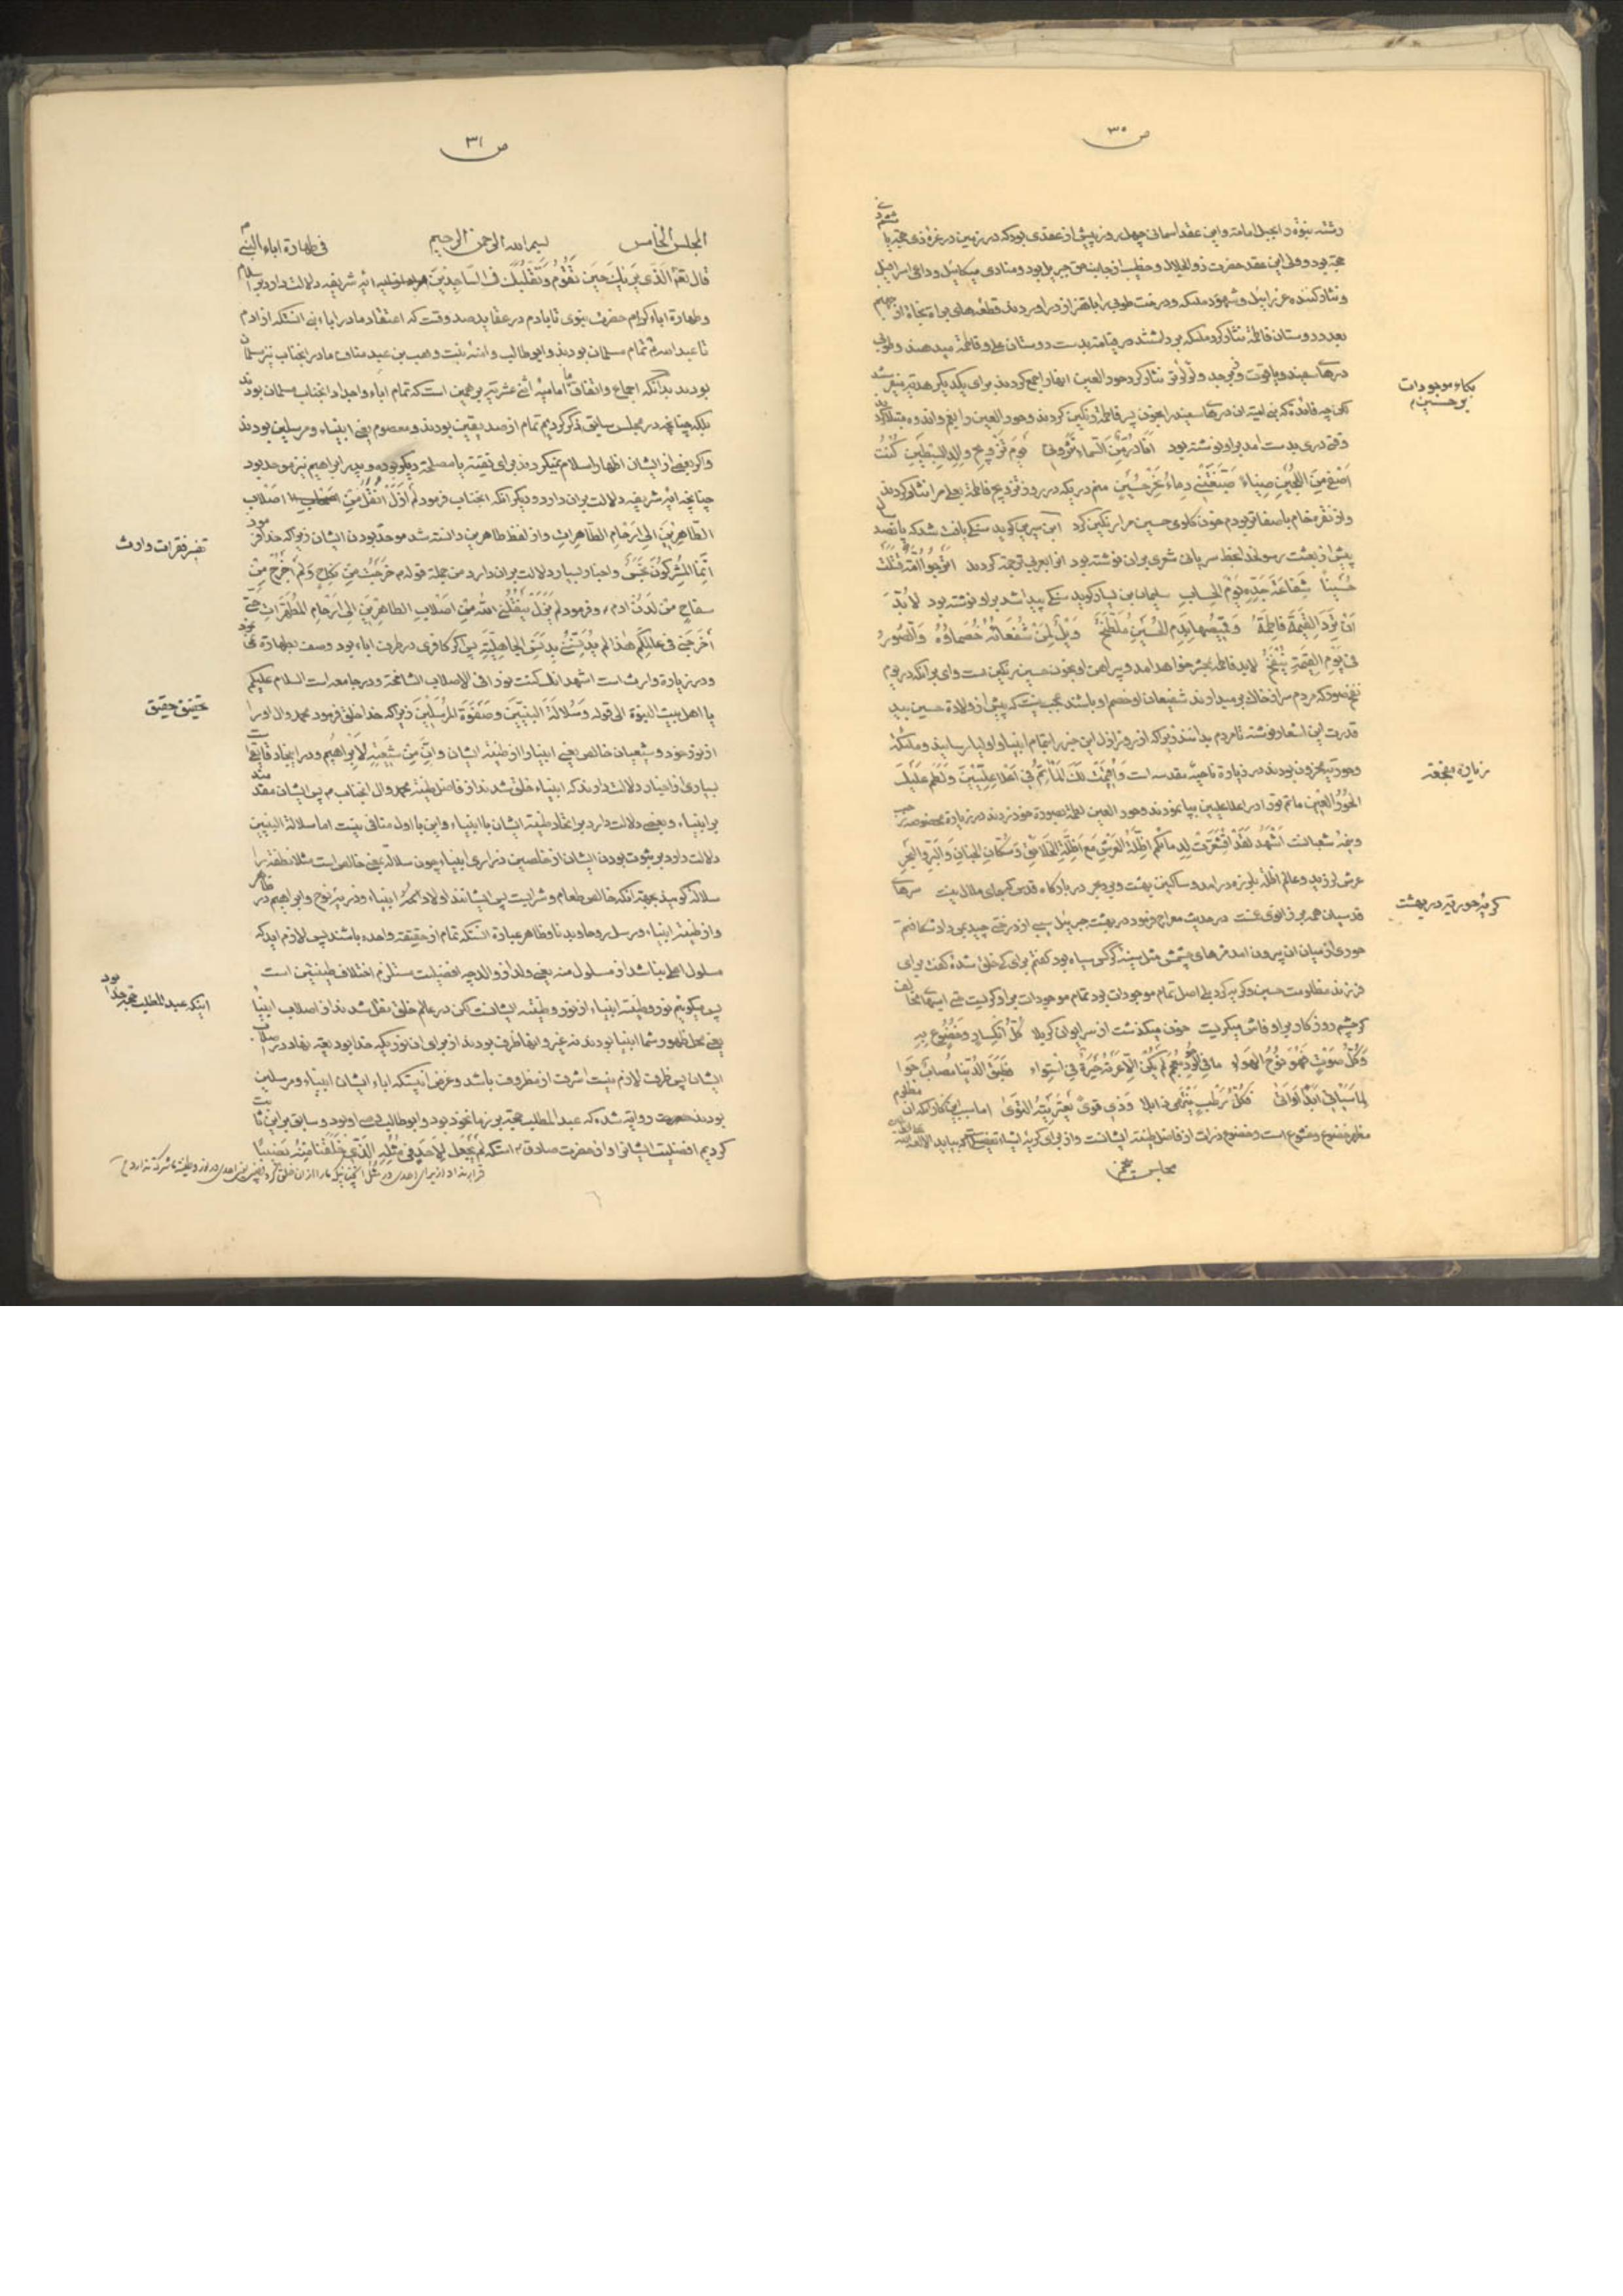 ص ٣٥
رشته نبوة را بحبل امامة و این عقد اسمانی چهل روز پیش از عقدی بود که در زمین در غره ذی حجه یا ششم ذی
حجه بود و ولی این عقد حضرت ذو الجلال و خطیب از جانب حق جبریل بود و منادی میکائیل و داعی اسرافیل
و نثار کننده عزرائیل و شهود ملئکه و درخت طوبی را باهتزاز دراوردند قطعه های براة نجاة از جهنم
بعدد دوستان فاطمه نثار کرد ملئکه برداشتند در قیامة بدست دوستان علی و فاطمه میدهند و طوبی
درهای سفید و یاقوت و زبرجد و لؤلؤ تر نثار کرد حور العین انها را جمع کردند برای یکدیگر هدیه
لکن چه فائده که بنی امیه ان درهای سفید را بخون پسر فاطمه رنگین کردند و حور العین را بغم و اندوه مبتلا کردند
وقتی دری بدست امد بر او نوشته بود انا در من السماء نثرونی یوم تزویج والد السبطین کنت
اصفی من اللجین صبغتنی دماء نحر حسین منم دریکه در روز تزویج فاطمه بعلی مرا نثار کردند
و از نقره خام با صفاتر بودم خون گلوی حسین مرا رنگین کرد ابن سیرین گوید سنگی یافت شد که پانصد سال
پیش از بعثت رسولخدا بخط سریانی شعری بر ان نوشته بود انرا بعربی ترجمه کردند اترجو امة قتلت
حسینا شفاعة جده یوم الحساب سلیمان بن یسار گوید سنگی پیدا شد بر او نوشته بود لا بد
ان ترد القیمة فاطمة و قمیصها بدم الحسین ملطخ ویل لمن شفعائه خصمائه و الصور
فی یوم القیمة ینفخ لابد فاطمه بحشر خواهد امد و پیراهن او بخون حسین رنگین است وای بر انکه در یوم
نفخ صور که مردم سر از خاک بر میدارند شفیعان او خصم او باشند عجب نیست که پیش از ولادة حسین بید
قدرت این اشعار نوشته تا مردم بدانند زیرا که از روز ازل این خبر را بتمام انبیا و اولیا رسانید و ملئکه
و حوریه محزون بودند در زیارة ناحیه مقدسه است و اقیمت لک المآتم فی اعلا علیین و لطم علیک
الحور العین ماتم تو را در اعلا علیین بپا نمودند و حور العین لطمه بصورة خود زدند در زیارة مخصوصه رجب
و نیمه شعبانت اشهد لقد اقشعرت لدمائکم اظلة العرش مع اظلة الخلائق و سکان الجنان و البر و البحر
عرش لرزید و عالم اظله بلرزه درامد و ساکنین بهشت و بر و بحر در بارگاه قدس که جای ملال نیست سرهای
قدسیان همه بر زانوی غمست در حدیث معراج فرمود در بهشت جبرئیل سیبی از درختی چید بمن داد شکافتم
حوری از میان ان بیرون امد مژهای چشمش مثل سینه کرکس سیاه بود گفتم برای که خلق شدۀ گفت برای
فرزند مظلومت حسین و گریه کرد بلی اصل تمام موجودات بود تمام موجودات بر او گریست حتی اسبهای مخالف
گر چشم روزگار بر او فاش میگریست خون میگذشت از سر ایوان کربلا کل انکسار و خضوع به
و کل صوت فهو نوح الهواء
اما سبب انکه ان مظلوم
مظهر خضوع و خشوع است و خضوع ذرات از فاضل طینة ایشانست
مجلس پنجم
بکاء موجودات
بر حسین
زیارة رجبیه
گریه حوریه در بهشت
ص ٣٦
المجلس الخامس بسم الله الرحمن الرحیم فی طهارة اباء النبی
قال تعه الذی یریک حین تقوم و تقلبک فی الساجدین ایه شریفه دلالت دارد بر اسلام
و طهارة اباء کرام حضرت نبوی تا بادم در عقاید صدوقست که اعتقاد ما در اباء نبی انستکه از ادم
تا عبد الله تمام مسلمان بودند و ابو طالب و امنه بنت وهب بن عبد مناف مادر انجناب نیز مسلمان
بودند بدانکه اجماع و اتفاق ما امامیه اثنی عشریه بر همین است که تمام اباء و اجداد انجناب مسلمان بودند
بلکه چنانچه در مجلس سابق ذکر کردیم تمام از صدیقین بودند و معصوم یعنی انبیاء و مرسلین بودند
و اگر بعضی از ایشان اظهار اسلام نمیکردند برای تقیه یا مصلحة دیگر بوده و پدر ابراهیم نیز موحد بود
چنانچه ایه شریفه دلالت بر ان دارد و دیگر انکه انجناب فرمود لم ازل انقل من اصلاب
الطاهرین الی ارحام الطاهرات و از لفظ طاهرین دانسته شد موحد بودن ایشان زیرا که خدا فرمود
انما المشرکون نجس و اخبار بسیار دلالت بر ان دارد من جمله قوله خرجت من نکاح و لم اخرج من
سفاح من لدن ادم و فرمود لم یزل ینقلنی الله من اصلاب الطاهرین الی ارحام المطهرات حتی
اخرجنی فی عالمکم هذا لم یدنسنی بدنس الجاهلیة پس اگر کافری در طرف اباء بود وصف بطهارة نمی نمود
و در زیارة وارث است اشهد انک کنت نورا فی الاصلاب الشامخة و در جامعه است السلام علیکم
یا اهل بیت النبوة الی قوله و سلالة النبیین و صفوة المرسلین زیرا که خدا خلق فرمود محمد و ال او را
از نور خود و شیعیان خالص یعنی انبیا را از طینة ایشان و ان من شیعته لابراهیم و در ایجاد
بسیاری از اخبار دلالت دارند که انبیاء خلق شدند از فاضل طینة محمد و ال انجناب پس ایشان مقدمند
بر انبیاء و بعضی دلالت دارد بر اتحاد طینة ایشان با انبیاء و این با اول منافی نیست اما سلالة النبیین
دلالت دارد بر ثبوت بودن ایشان از خلصین ذراری انبیاء چون سلاله یعنی خالص است مثلا نطفه را
سلاله گویند بجهة انکه خالص طعام و شرابست پس ایشانند اولاد انبیاء و ذریه نوح و ابراهیم در ظاهر
و از طینة انبیاء و رسل روحا و بدنا و ظاهر عبارة انستکه تمام از حقیقة واحده باشند پس لازم اید که
مسلول اعلی نباشد از مسلول منه یعنی ولد از والد چه افضلیت مستلزم اختلاف طینتین است
پس میگوئیم نور و طینة انبیاء از نور و طینة ایشانست لکن در عالم خلق نقل شدند از اصلاب انبیاء
یعنی محل ظهور شما انبیا بودند نه غیر و انها ظرف بودند از برای ان نوریکه خدا بودیعه نهاد در اصلاب
ایشان پس ظرف لازم نیست اشرف از مظروف باشد و غرض اینستکه اباء ایشان انبیاء و مرسلین
بودند روایة شده که عبد المطلب حجة بر زمان خود بود و ابو طالب وصی او بود و سابق بر این ثابت
کردیم افضلیت ایشانرا و از حضرت صادق است که لم یجعل لاحد فی مثل الذی خلقنا منه نصیبا
تفسیر فقرات وارث
تحقیق حقیق
اینکه عبد المطلب حجة خدا بود